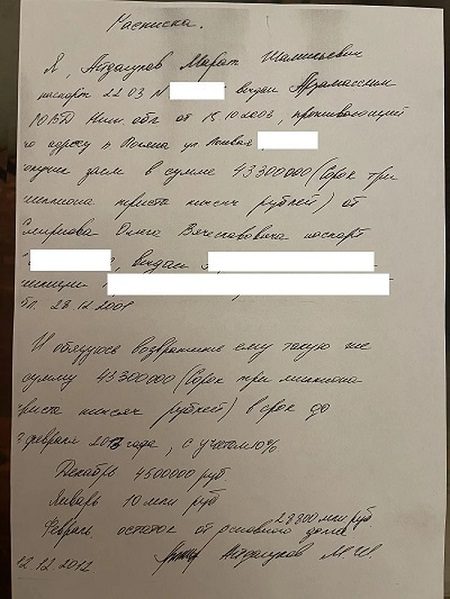 Расписка.
Я, Абдулгуков Марат Шамильевич
паспорт 22 03 N выдан Арзамасским
ЮВД Ниж. обл от 15.10.2003, проживающий
по адресу п ул
получил заем в сумме 43300000 (Сорок три
миллиона триста тысяч рублей) от
Смирнова Олега Вячеславовича паспорт
, выдан
28.12.2001
И обязуюсь возвратить ему такую же
сумму 43300000 (Сорок три миллиона
триста тысяч рублей) в срок до
февраля 2013 года, с учетом 10%
Декабрь 4500000 руб.
Январь 10 млн руб
28800 млн руб
Февраль. остаток от основного долга
12.12.2012. М.Ш.